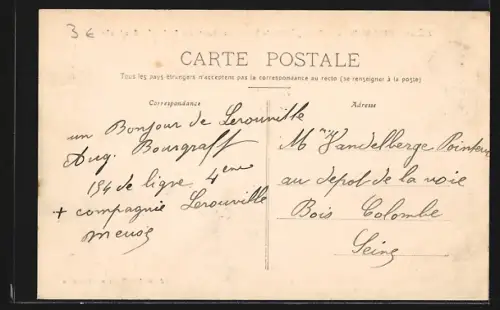 3 €
CARTE POSTALE
Tous les pays étrangers n'acceptent pas la correspondance au recto (se renseigner à la poste)
Correspondance
un Bonjour de Lerouville
Aug. Bourgraff
154 de ligne 4eme
+ compagnie Lerouville
meuse
Adresse
Mr Vandelberge Pointeur
au depot de la voie
Bois Colombe
Seine